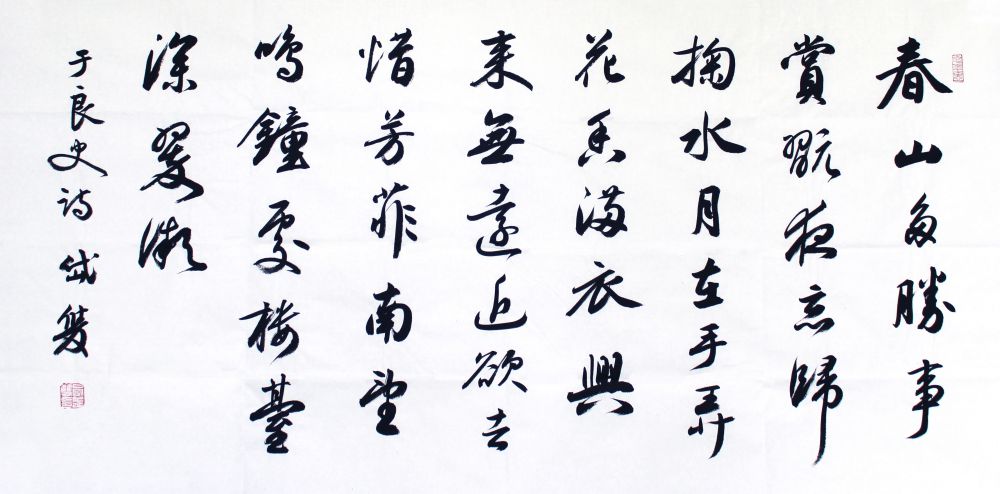 春山多勝事
賞翫夜忘歸
掬水月在手弄
花香滿衣興
來無遠近欲去
惜芳菲南望
鳴鐘處樓臺
深翠微
于良史詩 岱